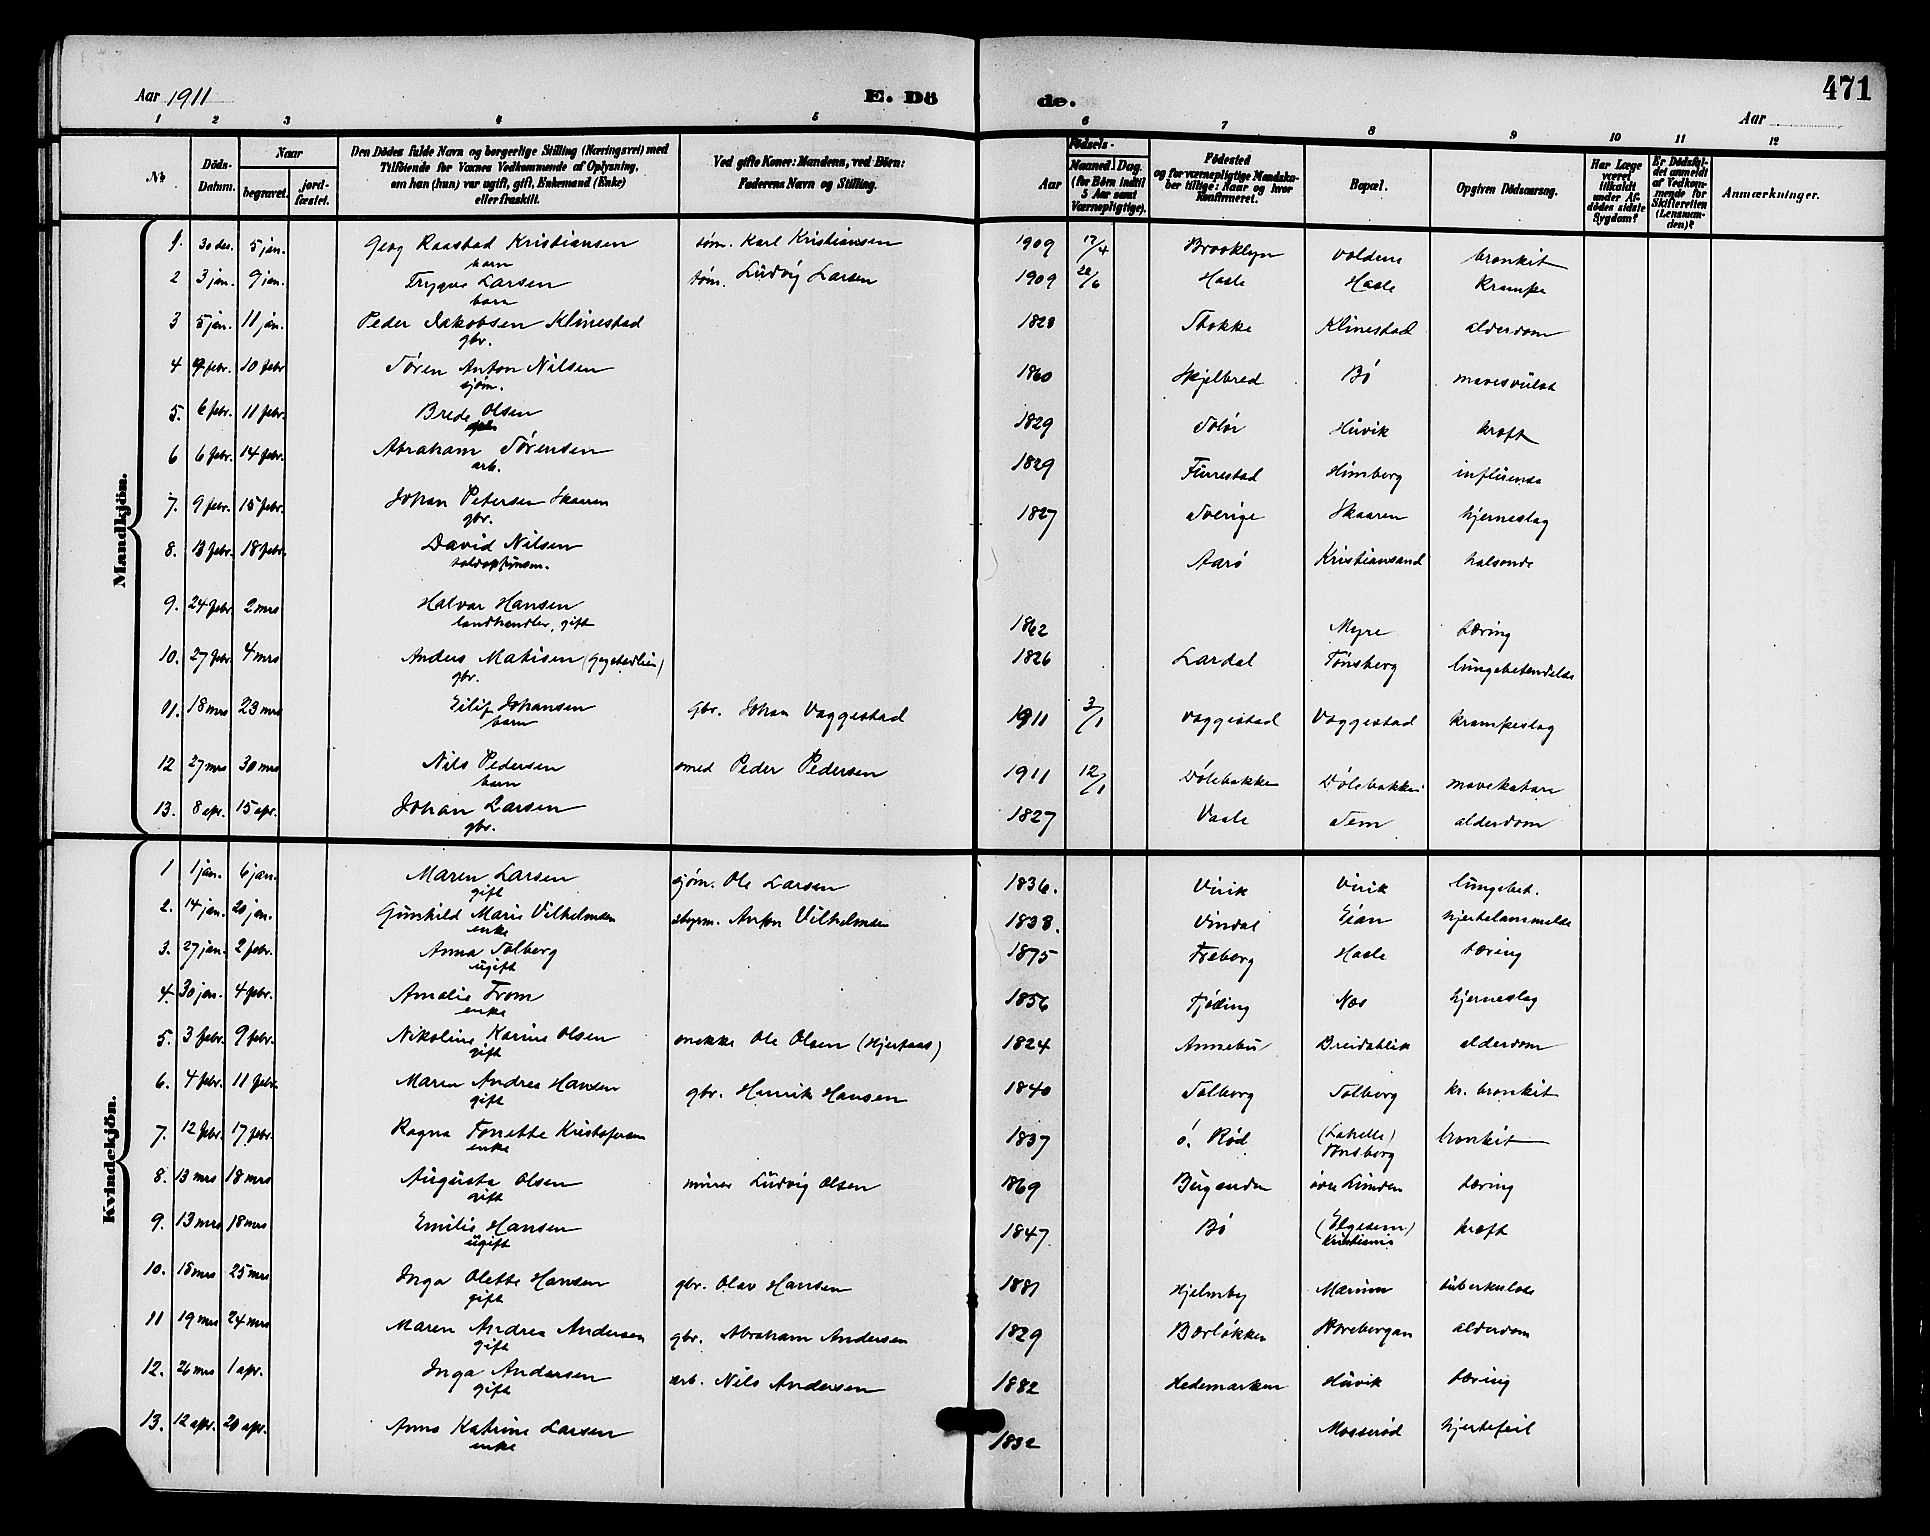 Aar 1911
E. Döde.
Aar
471
1 2 3 4 5 6 7 8 9 10 11 12
No.
Döds-Datum.
Naar
begravet.
jordfæstet.
Den Dödes fulde Navn og borgerlige Stilling (Næringsvei) med Tilföiende for Voxnes Vedkommende af Oplysning, om han (hun) var ugift, gift, Enkemand (Enke) eller fraskilt.
Ved gifte Koner: Mandens, ved Börn: Faderens Navn og Stilling.
Födsels-
Aar
Maaned. Dag. (for Börn indtil 5 Aar samt Værnepligtige).
Födested og for værnepligtige Mandskaber tillige: Naar og hvor Konfirmeret.
Bopæl.
Opgiven Dödsaarsag.
Har Læge været tilkaldt under Afdödes sidste Sygdom?
Er Dödsfaldet anmeldt af Vedkommende for Skifteretten (Lensmanden)?
Anmærkninger.
Mandkjön.
1. 30 des. 5 jan. Georg Raastad Kristiansen barn tøm. Karl Kristiansen 1909 17/4 Brooklyn voldene bronkit
2 3 jan. 9 jan. Trygve Larsen barn tøm. Ludvig Larsen 1909 28/6 Hasle Hasle Krampe
3 5 jan. 11 jan. Peder Jakobsen Klinestad gbr. 1828 Stokke Klinestad alderdom
4 4 febr. 10 febr Søren Anton Nilsen sjøm. 1860 Skjelbred Bø mavesvulst
5. 6 febr. 11 febr. Brede Olsen 1829 Solør Huvik kræft
6 6 febr. 14 febr. Abraham Sørensen arb. 1829 Furrestad Himberg influensa
7. 9 febr. 15 febr. Johan Petersen Skaaren gbr. 1827 Sverige Skaaren hjerneslag
8. 13 febr. 18 febr. David Nilsen toldopsynsm. Aarø Kristiansand halsonde
9. 24 febr. 2 mrs Halvar Hansen landhandler, gift 1862 Myre tæring
10. 27 febr. 4 mrs Anders Matisen gbr. 1826 Lardal Tønsberg lungebetendelse
11. 18 mrs 23 mrs Eilif Johansen barn gbr. Johan Vaggestad 1911 3/1 Vaggestad Vaggestad krampeslag
12 27 mrs 30 mrs Nils Pedersen barn smed Peder Pedersen 1911 12/1 Dølebakken Dølebakken mavekatarr
13. 8 apr. 15 apr. Johan Larsen gbr. 1827 Vaale Sem alderdom
Kvindekjön.
1 1 jan. 6 jan. Maren Larsen gift sjøm. Ole Larsen 1836. Virik Virik lungebet.
2. 14 jan. 20 jan. Gunhild Marie Vilhelmsen enke styrm. Anton Vilhelmsen 1838. Vindal Eian hjertelammelse
3. 27 jan. 2 febr. Anna Solberg ugift 1875 Freberg Hasle tæring
4. 30 jan. 4 febr. Amalie From enke 1856 Fjøding Nes hjerneslag
5. 3 febr. 9 febr. Nikoline Karine Olsen gift snekke Ole Olsen (Hjertaas) 1824 Annebu Breidablik alderdom
6. 4 febr. 11 febr. Maren Andrea Hansen gift gbr. Henrik Hansen 1840 Solberg Solberg kr. bronkit
7. 12 febr. 17 febr. Ragna Tonette Kristofersen enke 1837 ø. Rød Tønsberg bronkit
8. 13 mrs 18 mrs Augusta Olsen gift murer Ludvig Olsen 1869 Bugarden øvre Lunden tæring
9. 13 mrs 18 mrs Emilie Hansen ugift 1847 Bø (Elgesem) Kristiania kræft
10. 18 mrs 25 mrs Inga Olette Hansen gift gbr. Olav Hansen 1881 Hjelmby Marum tuberkulose
11 19 mrs 24 mrs Maren Andrea Andersen gift gbr. Abraham Andersen 1829 Bærløkken Norebergan alderdom
12. 26 mrs 1 apr. Inga Andersen gift arb. Nils Andersen 1882 Hedemarken Huvik tæring
13. 12 apr. 20 apr. Anne Katrine Larsen enke 1832 Mosserød hjertefeil